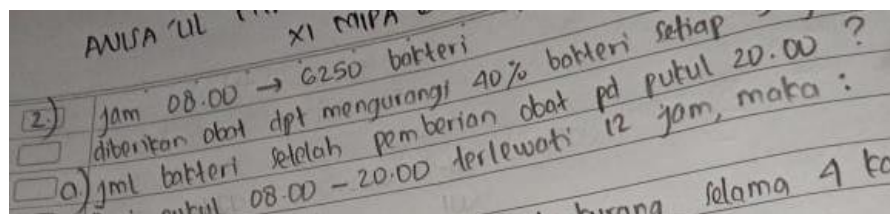 ANISA 'UL
XI MIPA
2.) jam 08.00 → 6250 bakteri
diberikan obat dpt mengurangi 40% bakteri setiap
a.) jml bakteri setelah pemberian obat pd pukul 20.00 ?
pukul 08.00 - 20.00 terlewati 12 jam, maka :
selama 4